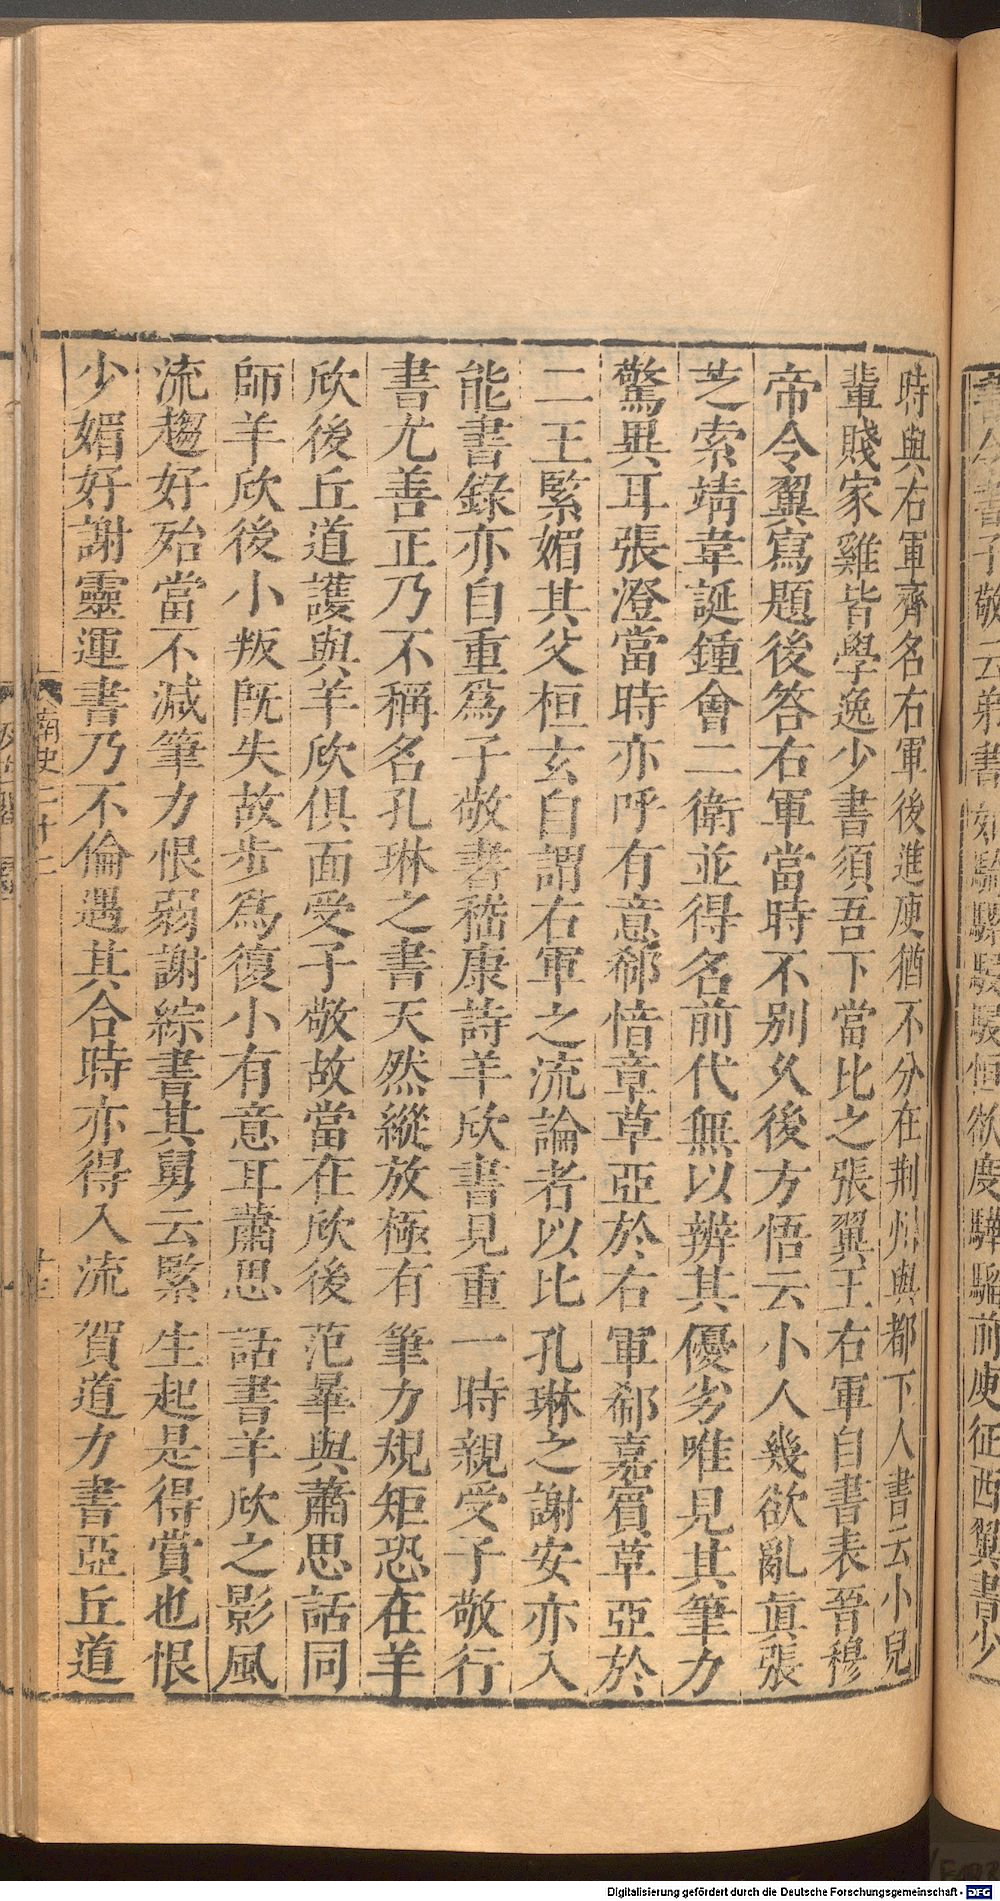 時與右軍齊名右軍後進庾猶不分在荆州與都下人書云小兒
輩賤家雞皆學逸少書須吾下當比之張翼王右軍自書表晉穆
帝令翼寫題後答右軍當時不別久後方悟云小人幾欲亂真張
芝索靖韋誕鍾會二衛並得名前代無以辨其優劣唯見其筆力
驚異耳張澄當時亦呼有意郗愔章草亞於右軍郗嘉賓草亞於
二王緊媚其父桓玄自謂右軍之流論者以比孔琳之謝安亦入
能書錄亦自重爲子敬書嵇康詩羊欣書見重一時親受子敬行
書尤善正乃不稱名孔琳之書天然縱放極有筆力規矩恐在羊
欣後丘道護與羊欣俱面受子敬故當在欣後范曄與蕭思話同
師羊欣後小叛既失故步爲復小有意耳蕭思話書羊欣之影風
流趨好殆當不減筆力恨弱謝綜書其舅云緊生起是得賞也恨
少媚好謝靈運書乃不倫遇其合時亦得入流賀道力書亞丘道
南史二十二
書
子敬云弟書如騎騾駸駸恒欲度驊騮前庾征西翼書少
Digitalisierung gefördert durch die Deutsche Forschungsgemeinschaft - DFG